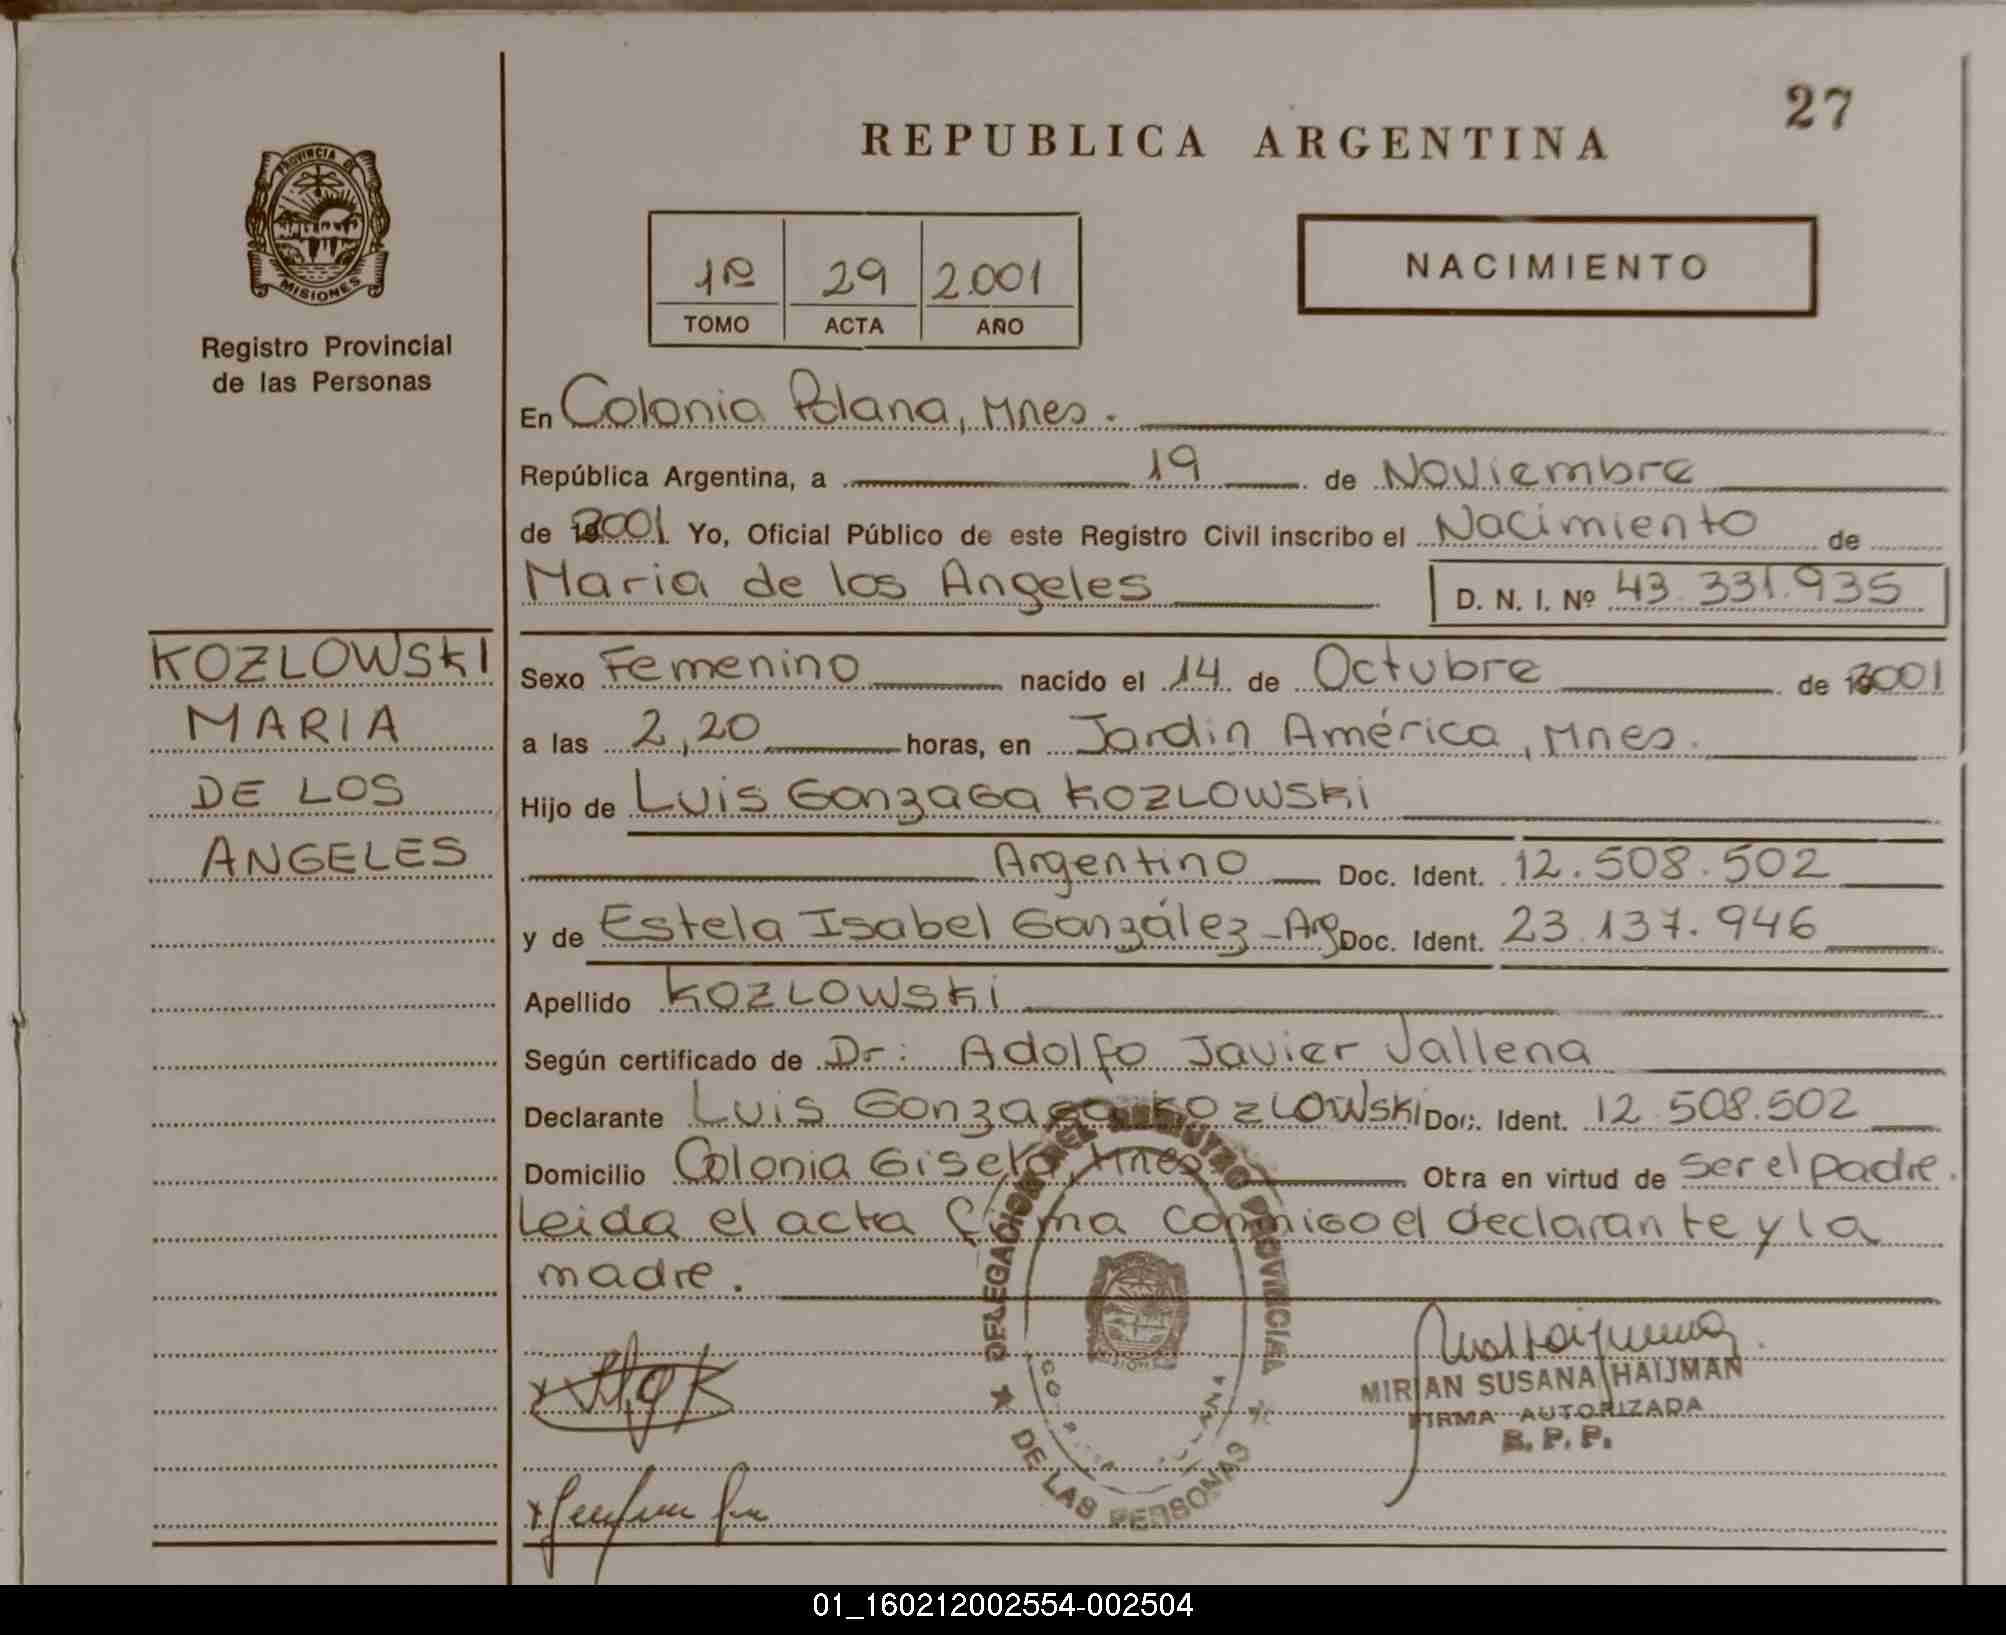 27
REPUBLICA ARGENTINA
PROVINCIA DE
MISIONES
Registro Provincial
de las Personas
1º 29 2.001
TOMO ACTA AÑO
NACIMIENTO
En Colonia Polana, Mnes.
República Argentina, a 19 de Noviembre
de 2001 Yo, Oficial Público de este Registro Civil inscribo el Nacimiento de
Maria de los Angeles D. N. I. Nº 43.331.935
KOZLOWSKI
MARIA
DE LOS
ANGELES
Sexo Femenino nacido el 14 de Octubre de 2001
a las 2,20 horas, en Jardin América, Mnes.
Hijo de Luis Gonzaga KOZLOWSKi
Argentino Doc. Ident. 12.508.502
y de Estela Isabel González - Arg Doc. Ident. 23.137.946
Apellido KOZLOWSKi
Según certificado de Dr: Adolfo Javier Vallena
Declarante Luis Gonzaga KOZLOWSKI Doc. Ident. 12.508.502
Domicilio Colonia Gisela, Mnes Otra en virtud de ser el padre.
Leida el acta firma conmigo el declarante y la
madre.
DELEGACION DEL REGISTRO PROVINCIAL
DE LAS PERSONAS
MISIONES
MIRIAN SUSANA HAIJMAN
FIRMA AUTORIZADA
R. P. P.
01_160212002554-002504